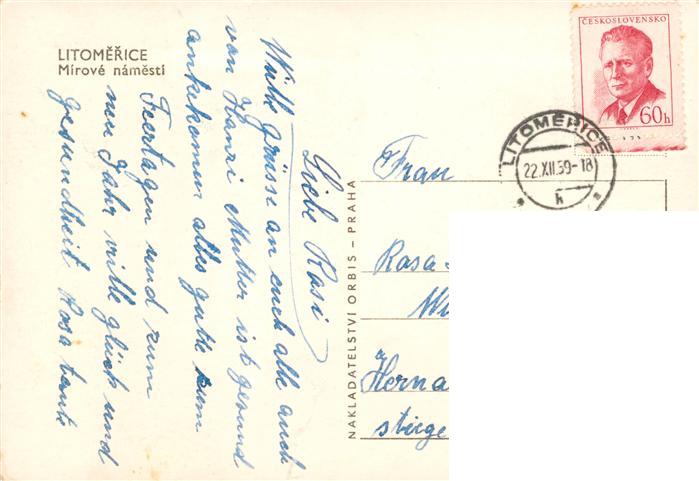 LITOMĚŘICE
Mírové náměstí
Liebe Rasi
Wiele Grüsse an euch alle auch
von Hanzi Mutter ist gesund
ankekomen alles gutte zum
Feertagen und zum
neu Jahr ville glück und
gesundheit Rosa tante
NAKLADATELSTVÍ ORBIS – PRAHA
ČESKOSLOVENSKO
60h
LITOMĚŘICE
22.XII.59-18
h
Frau
Rosa
Herna
stiege